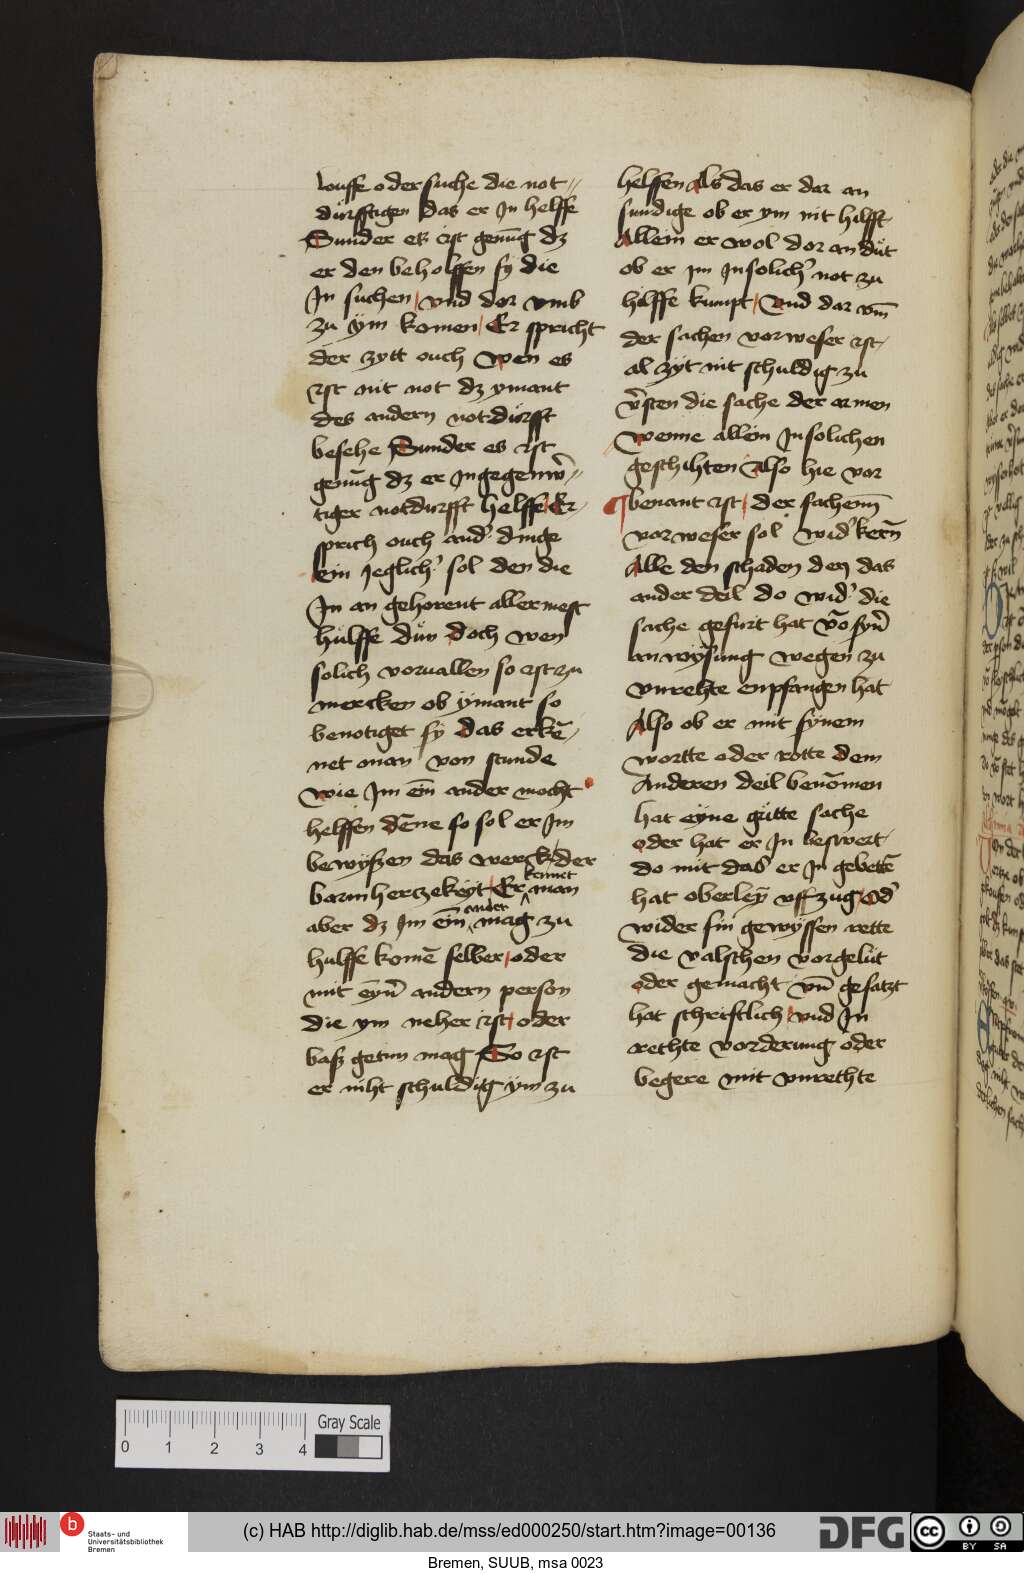 louffe oder suche die not⸗
dúrfftigen das er In helffe
Sunder es ist genūg dz
er den beholffen sy die
In suchen / vnd dor vmb
zu ÿm komen / Er spricht
der zytt ouch Wen es
ist nit not dz ymant
des andern notdúrfft
besehe Sunder es ist
genūg dz er In gegenw̄⸗
tiger notdurfft helffe / Er
sprich ouch and' dinge
ein Jeglich' sol den die
In an gehorent aller mest
húlffe dún doch wen
solich vorvallen so ist zu
mercken ob ÿmant so
benotiget sÿ das erkē⸗
net man von stunde
wie Im ein ander mocht
helffen dēne so sol er Im
bewÿszen das werck der
kennet
barmherczekeÿt / Er man
ander
aber dz Im ein mag zu
hulffe komē selber / oder
mit eyn' andern person
die ym neher ist / oder
basz getun mag So ist
er niht schuldig ÿm zu
helffen Als das er dar an
sundige ob er ym nit hilfft
Allein er wol dor an dút
ob er im In solich' not zu
hilffe kumpt / Vnd dar vm̄
der sachen vorweser ist
al zÿt nit schuldig zu
v'sten die sache der armen
wenne allein In solichen
geschihten Also hie vor
¶ benant ist / der sachenn
vorweser sol wid' kern̄
Alle den schaden den das
ander deil do wid' die
sache gefurt hat vō syn'
anwÿsung wegen zu
vnrehte enpfangen hat
Also ob er mit sÿnem
wortte oder rotte dem
Anderen deil benōmen
hat eÿne gútte sache
oder hat er In beswert
do mit das er In gebettē
hat oberleÿ vffzug / od'
wider sin gewÿssen rette
die valschen vorgelút
oder gemacht vn̄ gesatzt
hat schriftlich / vnd In
rethte vorderung oder
begere mit vnrethte
0 1 2 3 4
Gray Scale
b
Staats- und
Universitätsbibliothek
Bremen
(c) HAB http://diglib.hab.de/mss/ed000250/start.htm?image=00136
DFG
cc
BY SA
Bremen, SUUB, msa 0023